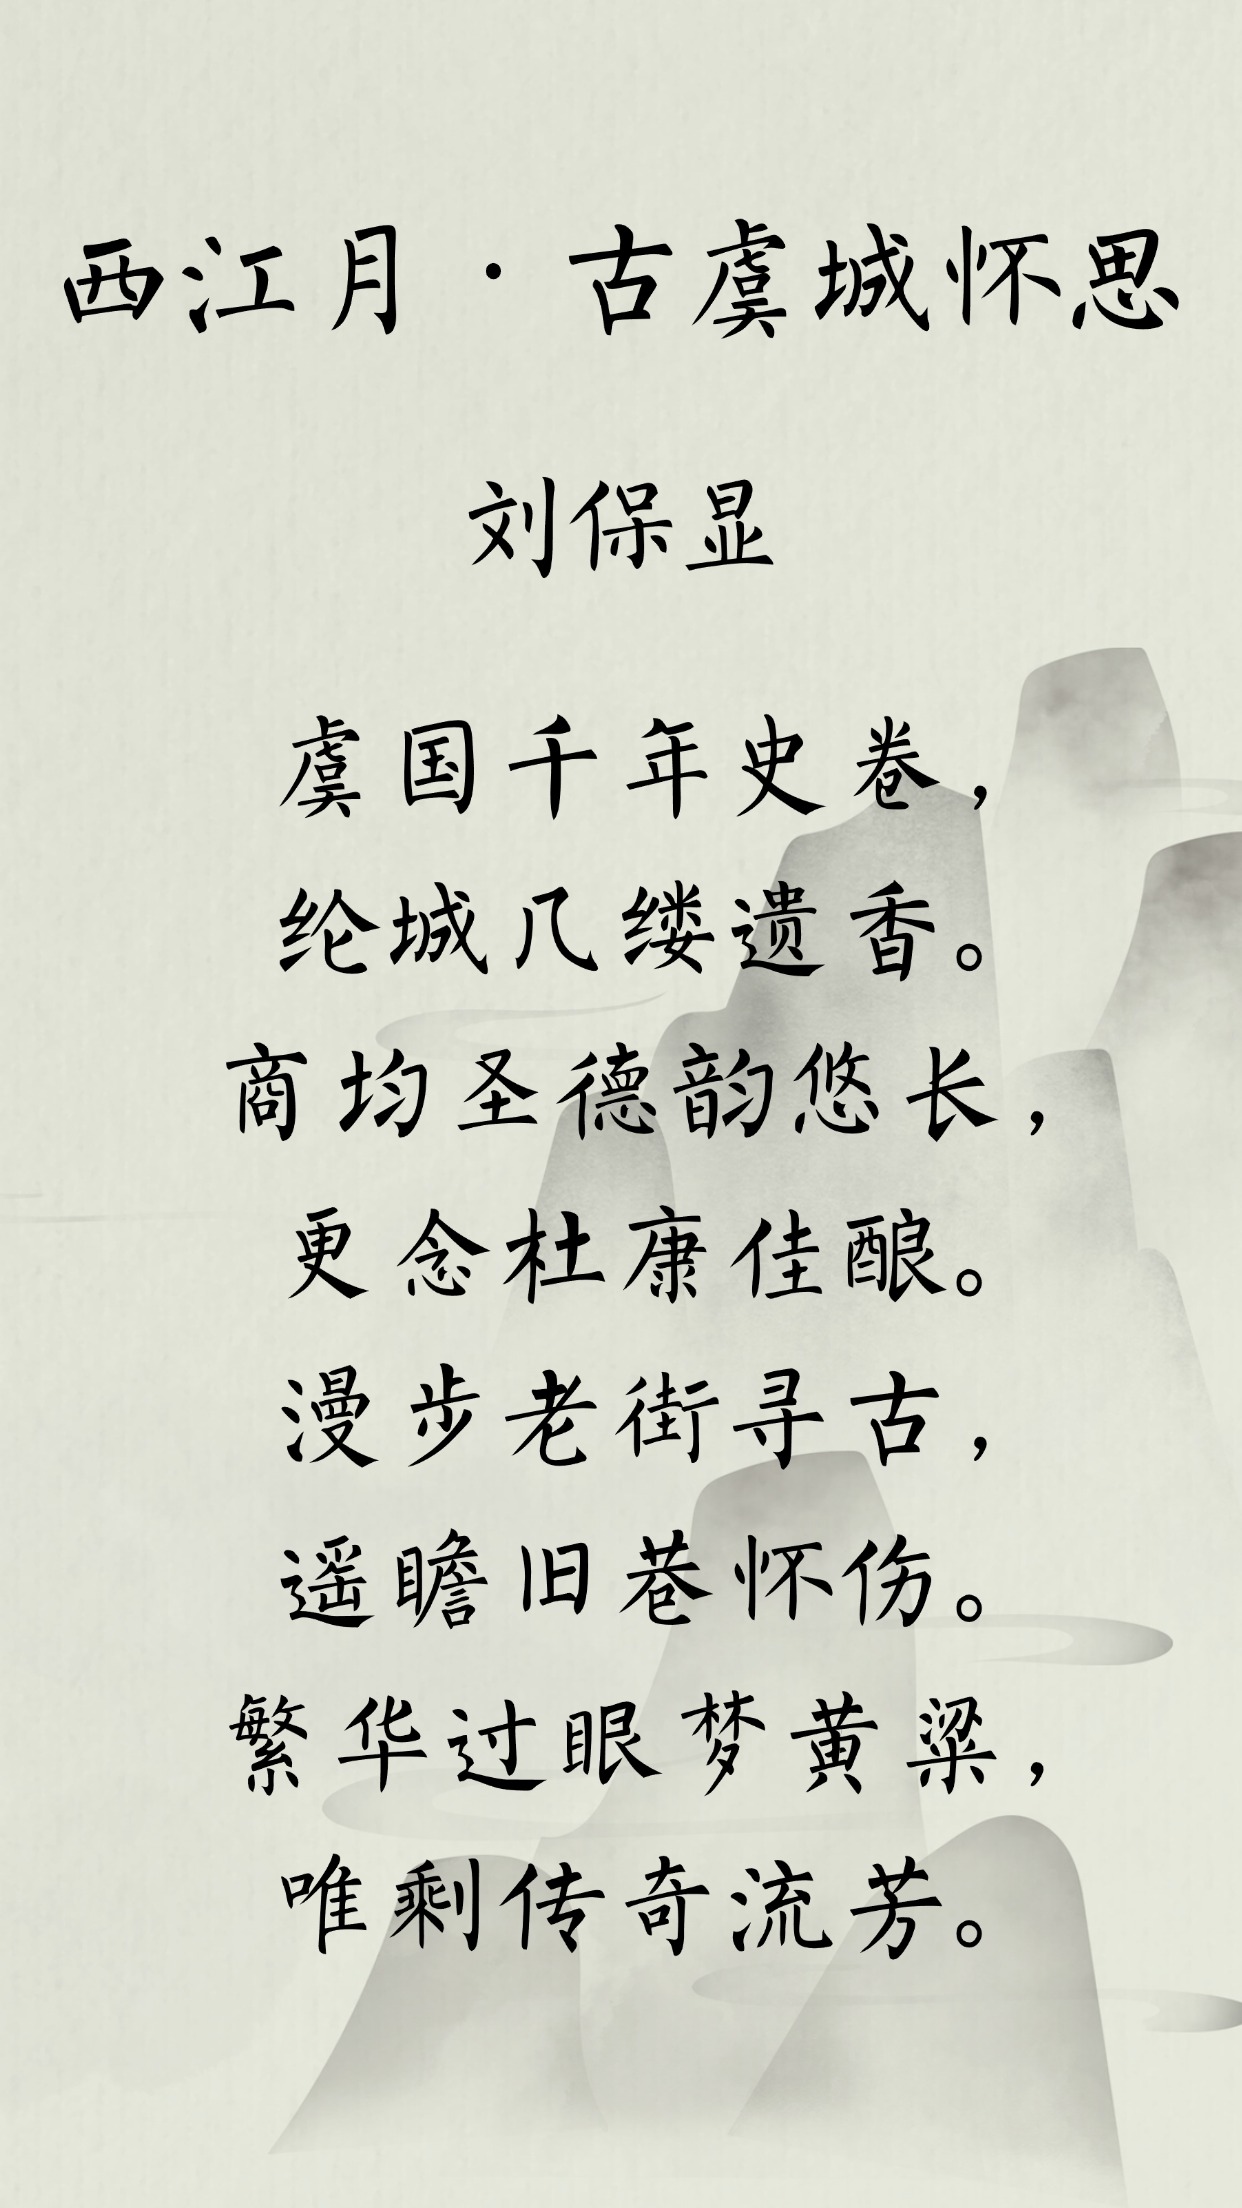 西江月·古虞城怀思
刘保显
虞国千年史卷，
纶城几缕遗香。
商均圣德韵悠长，
更念杜康佳酿。
漫步老街寻古，
遥瞻旧巷怀伤。
繁华过眼梦黄粱，
唯剩传奇流芳。